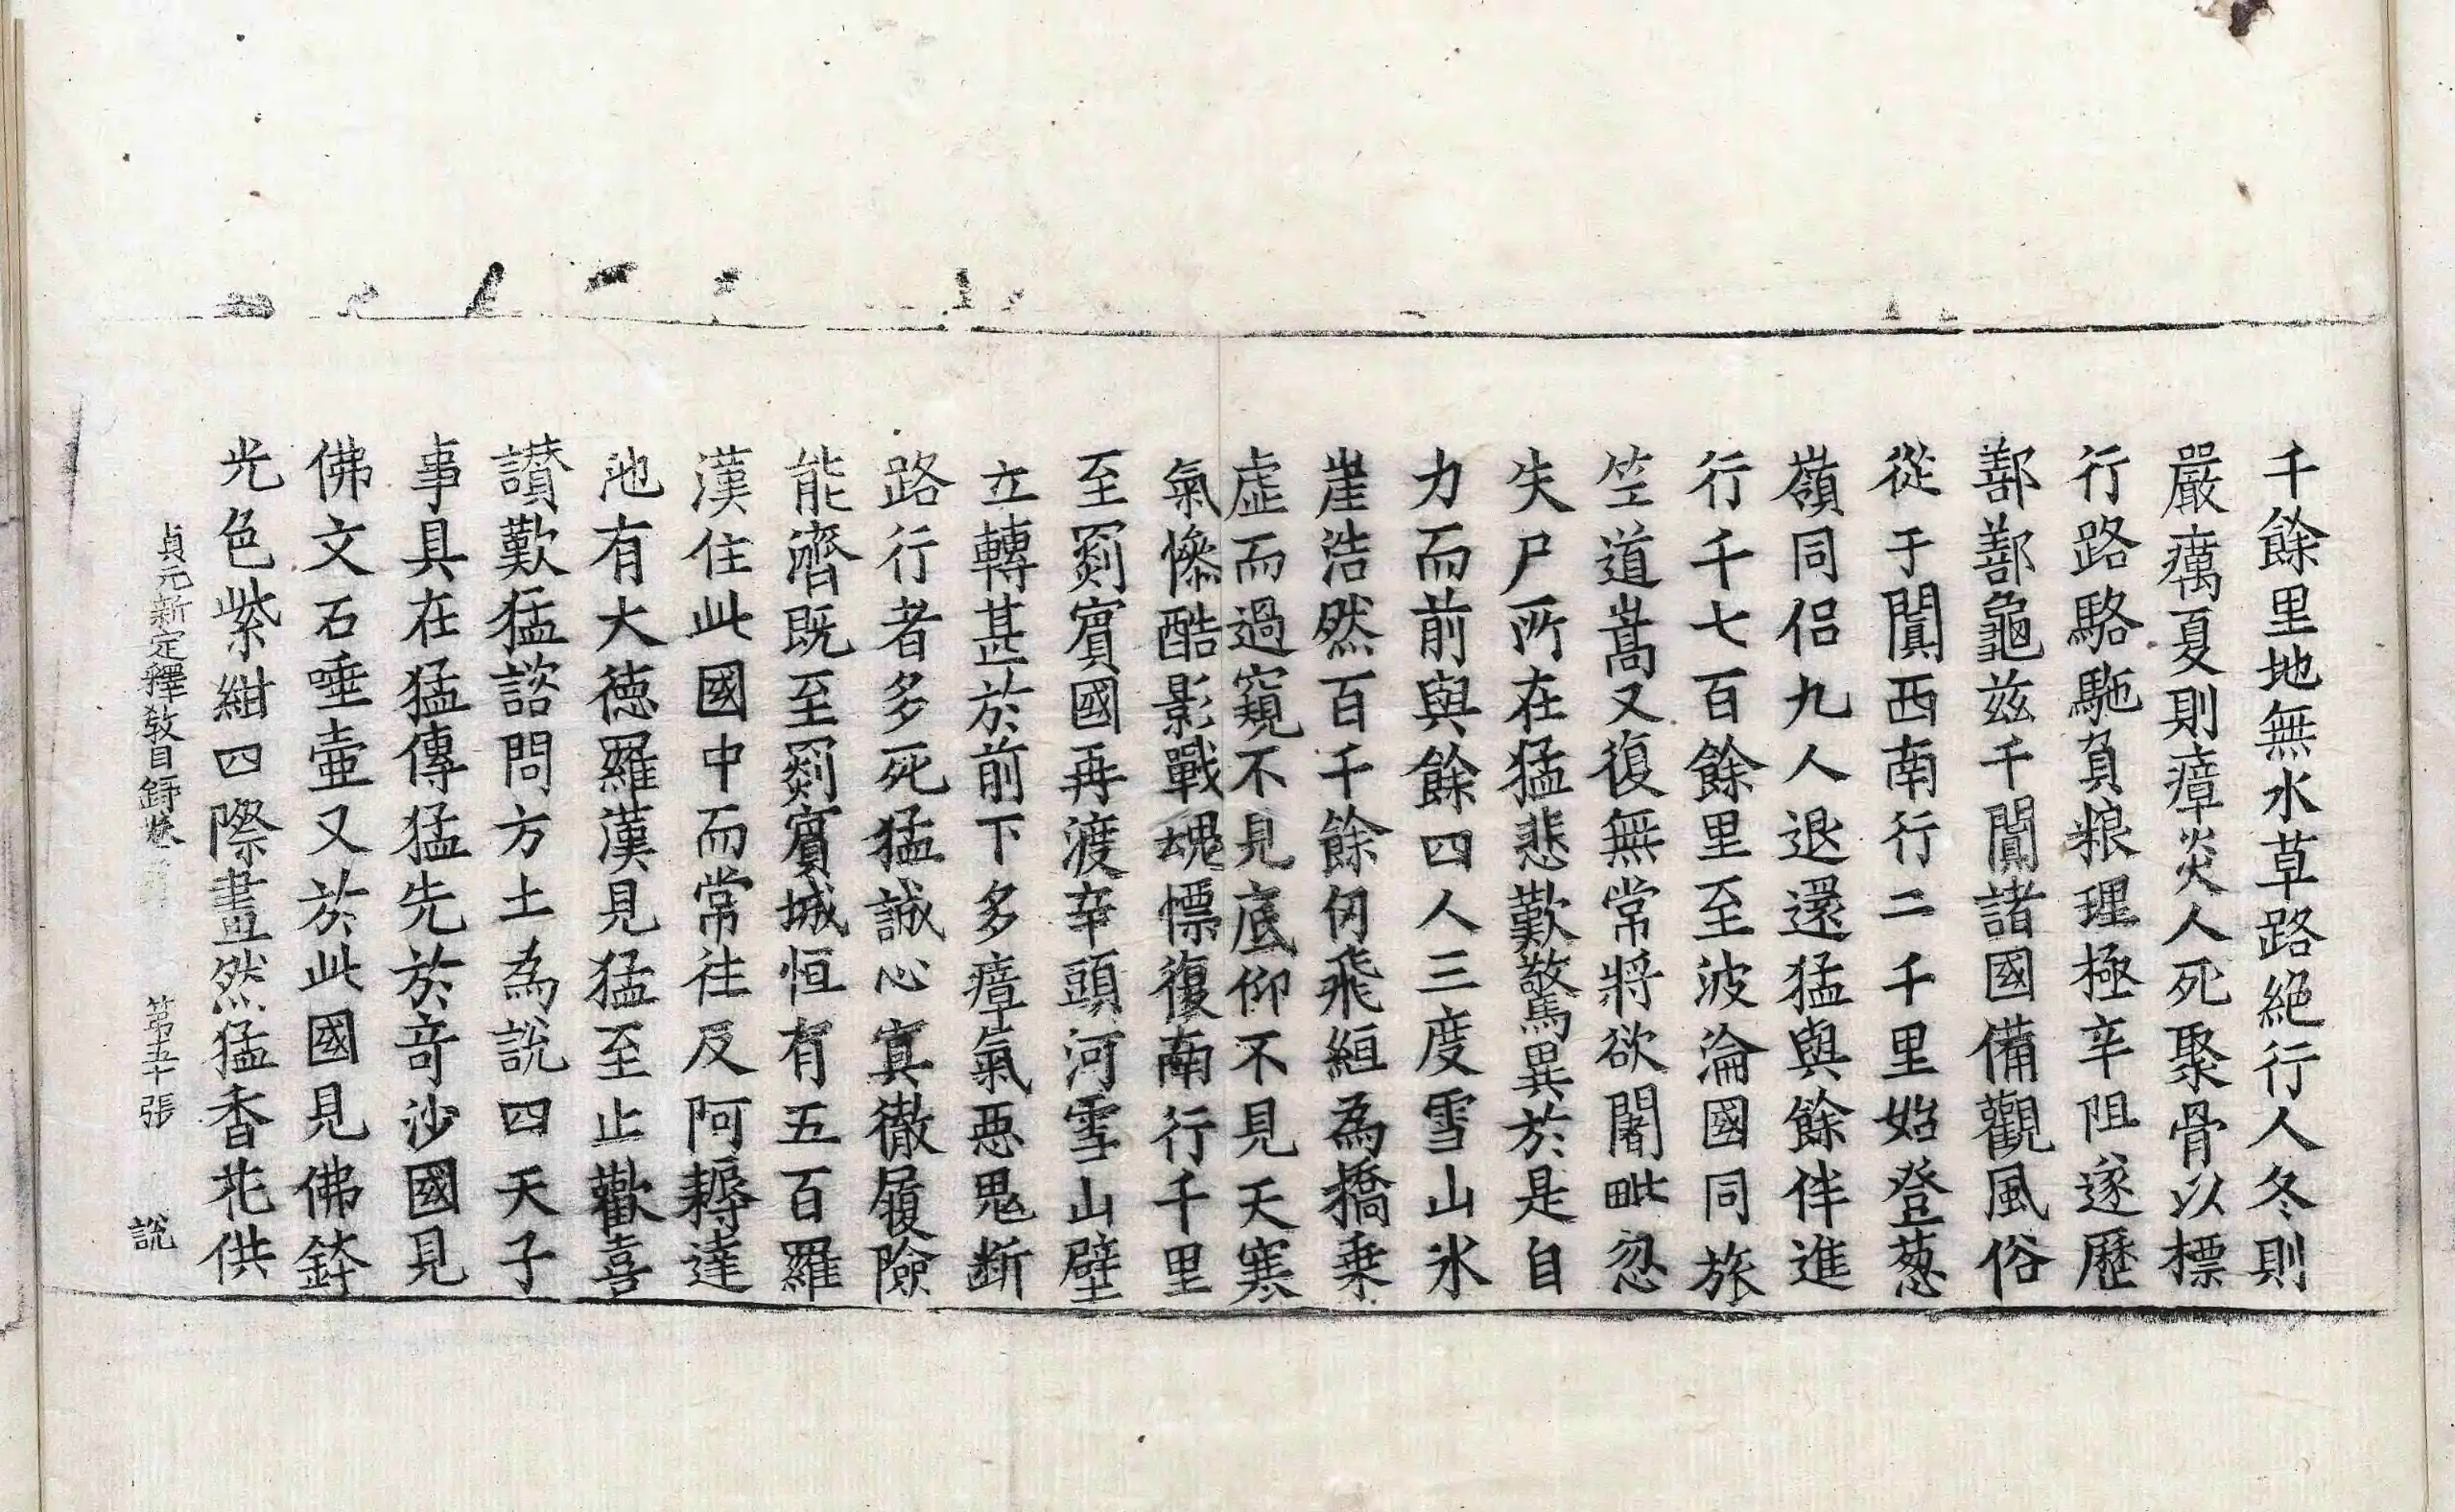 千餘里地無水草路絕行人冬則
嚴癘夏則瘴炎人死聚骨以標
行路駱駞負粮理極辛阻遂歷
鄯鄯龜茲千闐諸國備觀風俗
從于闐西南行二千里始登葱
嶺同侶九人退還猛與餘伴進
行千七百餘里至波淪國同旅
笁道嵩又復無常將欲闍毗忽
失尸所在猛悲歎驚異於是自
力而前與餘四人三度雪山氷
崖浩然百千餘仞飛絙為橋乗
虛而過窺不見底仰不見天寒
氣慘酷影戰魂慓復南行千里
至罽賓國再渡辛頭河雪山壁
立轉甚於前下多瘴氣惡鬼断
路行者多死猛誠心冥徹履險
能濟既至罽賓城恒有五百羅
漢住此國中而常往反阿耨達
池有大德羅漢見猛至止歡喜
讃歎猛諮問方土為說四天子
事具在猛傳猛先於奇沙國見
佛文石唾壷又於此國見佛鉢
光色紫紺四際畫然猛香花供
貞元新定釋教目録卷 第五十張 說